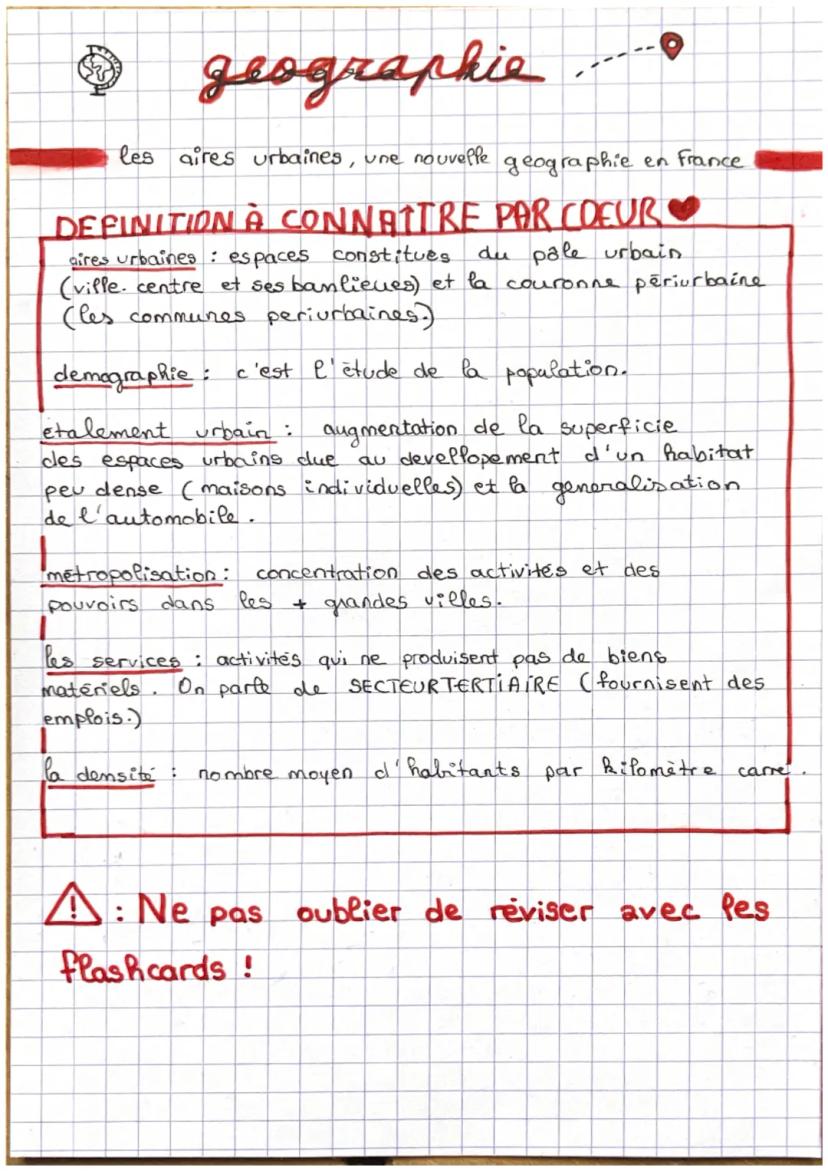 geographie
les aires urbaines, une nouvelle geographie en france
DEFINITION À CONNAÎTRE PAR COEUR
aires urbaines : espaces constitues du pôle urbain
(ville-centre et ses banlieues) et la couronne périurbaine
(les communes periurbaines.)
demographie : c'est l'étude de la population.
etalement urbain : augmentation de la superficie
des espaces urbains due au devellopement d'un habitat
peu dense (maisons individuelles) et la generalisation
de l'automobile.
metropolisation : concentration des activités et des
pouvoirs dans les + grandes villes.
les services : activités qui ne produisent pas de biens
matériels. On parle de SECTEUR TERTIAIRE (fournisent des
emplois.)
la densité : nombre moyen d'habitants par kilomètre carré.
! : Ne pas oublier de réviser avec les
flashcards !